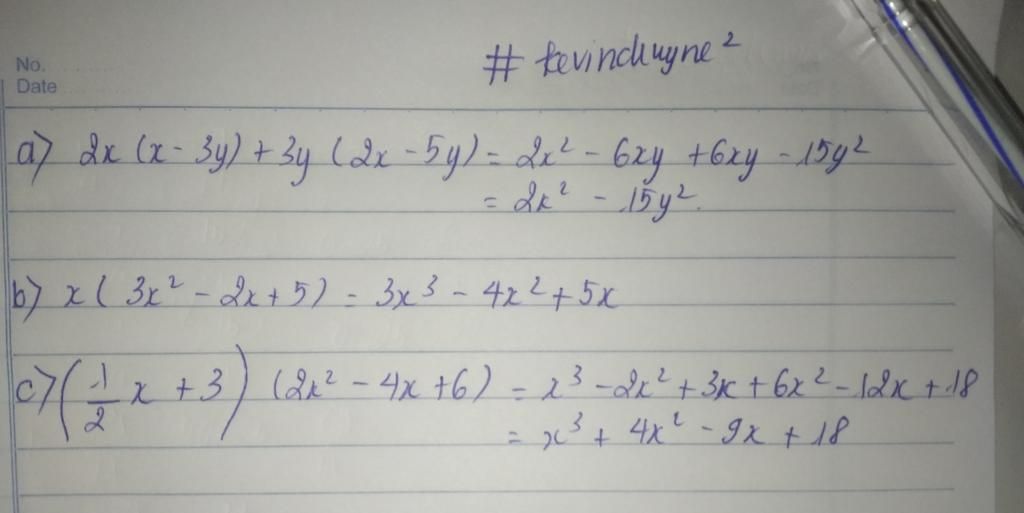 No.
Date
# kevinchuyne²
a) 2x (x - 3y) + 3y (2x - 5y) = 2x² - 6xy + 6xy - 15y²
= 2x² - 15y².
b) x ( 3x² - 2x + 5) = 3x³ - 4x² + 5x
c) (1/2 x + 3) (2x² - 4x + 6) = x³ - 2x² + 3x + 6x² - 12x + 18
= x³ + 4x² - 9x + 18